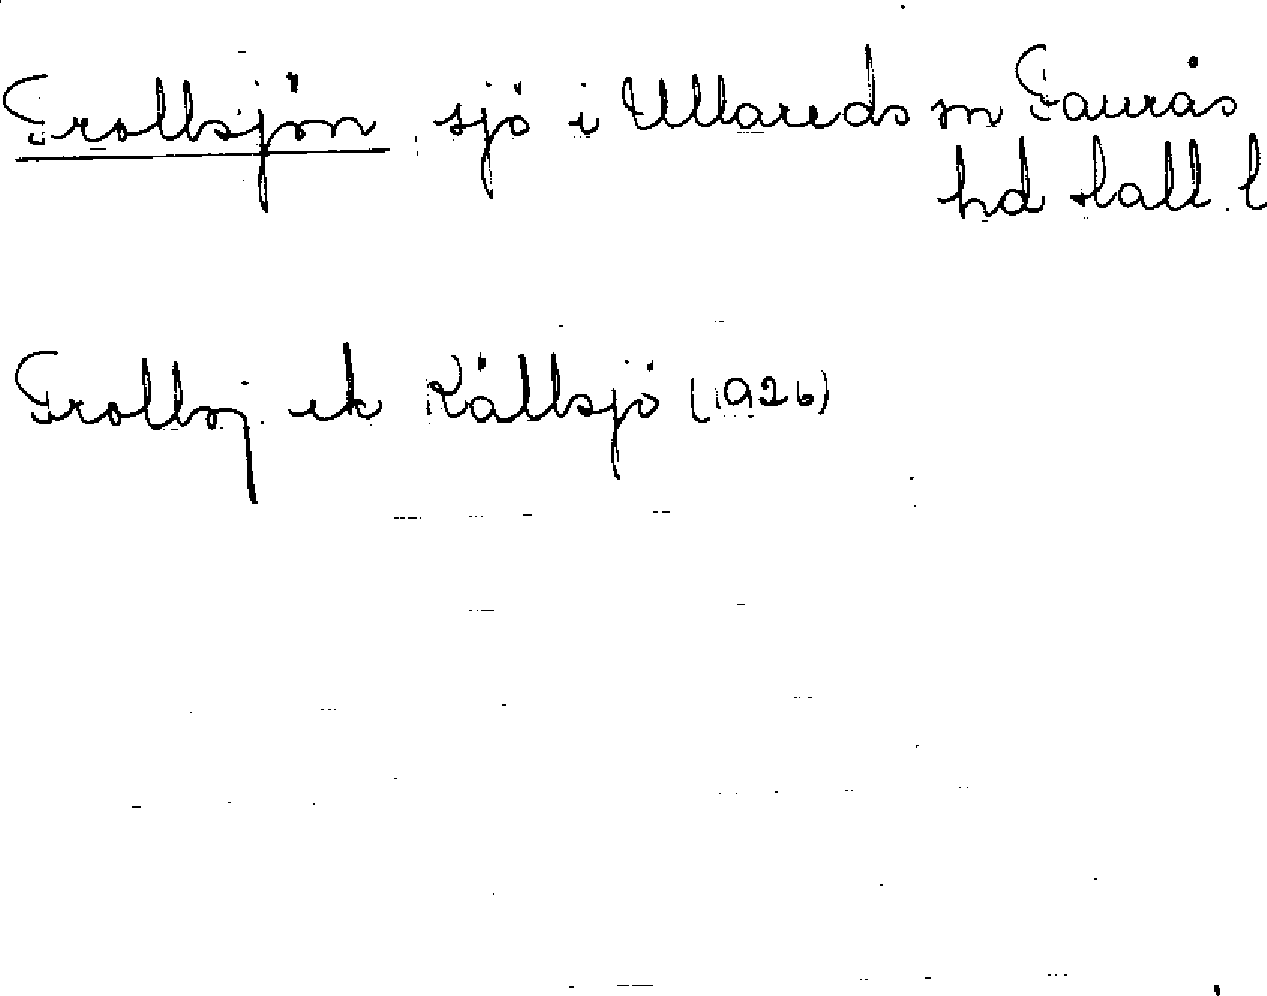 Trollsjön sjö i Ullareds sn Faurås
hd Hall. l
Trollsj ek Källsjö (1926)